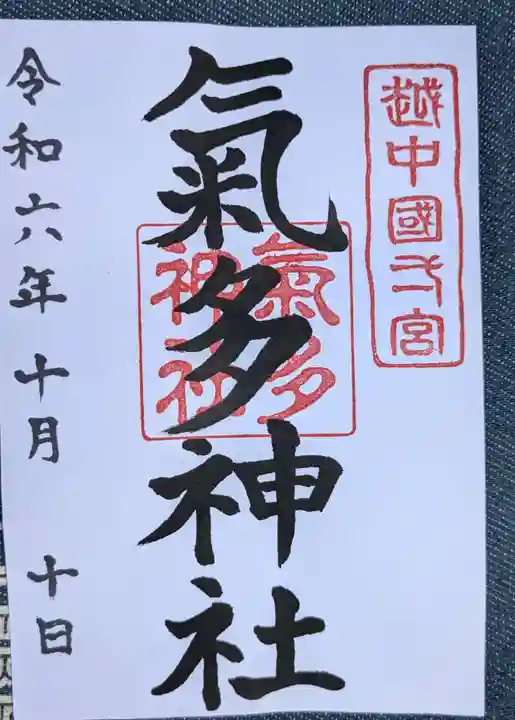 越中國一宮
氣多神社
氣多
神社
令和六年 十月 十日